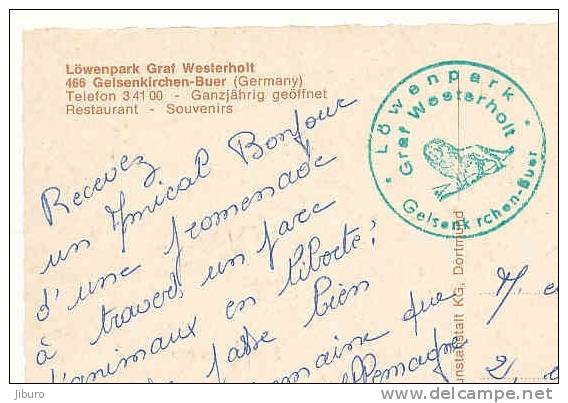 Löwenpark Graf Westerholt
466 Gelsenkirchen-Buer (Germany)
Telefon 34100 - Ganzjährig geöffnet
Restaurant - Souvenirs
* Löwenpark *
Graf Westerholt
Gelsenkirchen-Buer
Recevez
un Amical Bonjour
d'une promenade
à travers un parc
d'animaux en liberté;
fasse bien
que M. e
2, e
unstanstalt KG, Dortmund
jiburo
www.delcampe.net